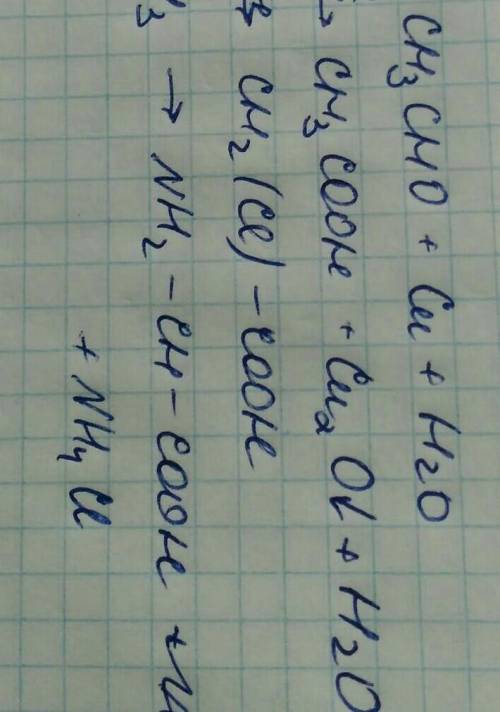 CH3CHO + Cu + H2O
→ CH3COOH + Cu2O↓ + H2O
→ CH2(Cl) – COOH
3 → NH2 – CH – COOH +
+ NH4Cl